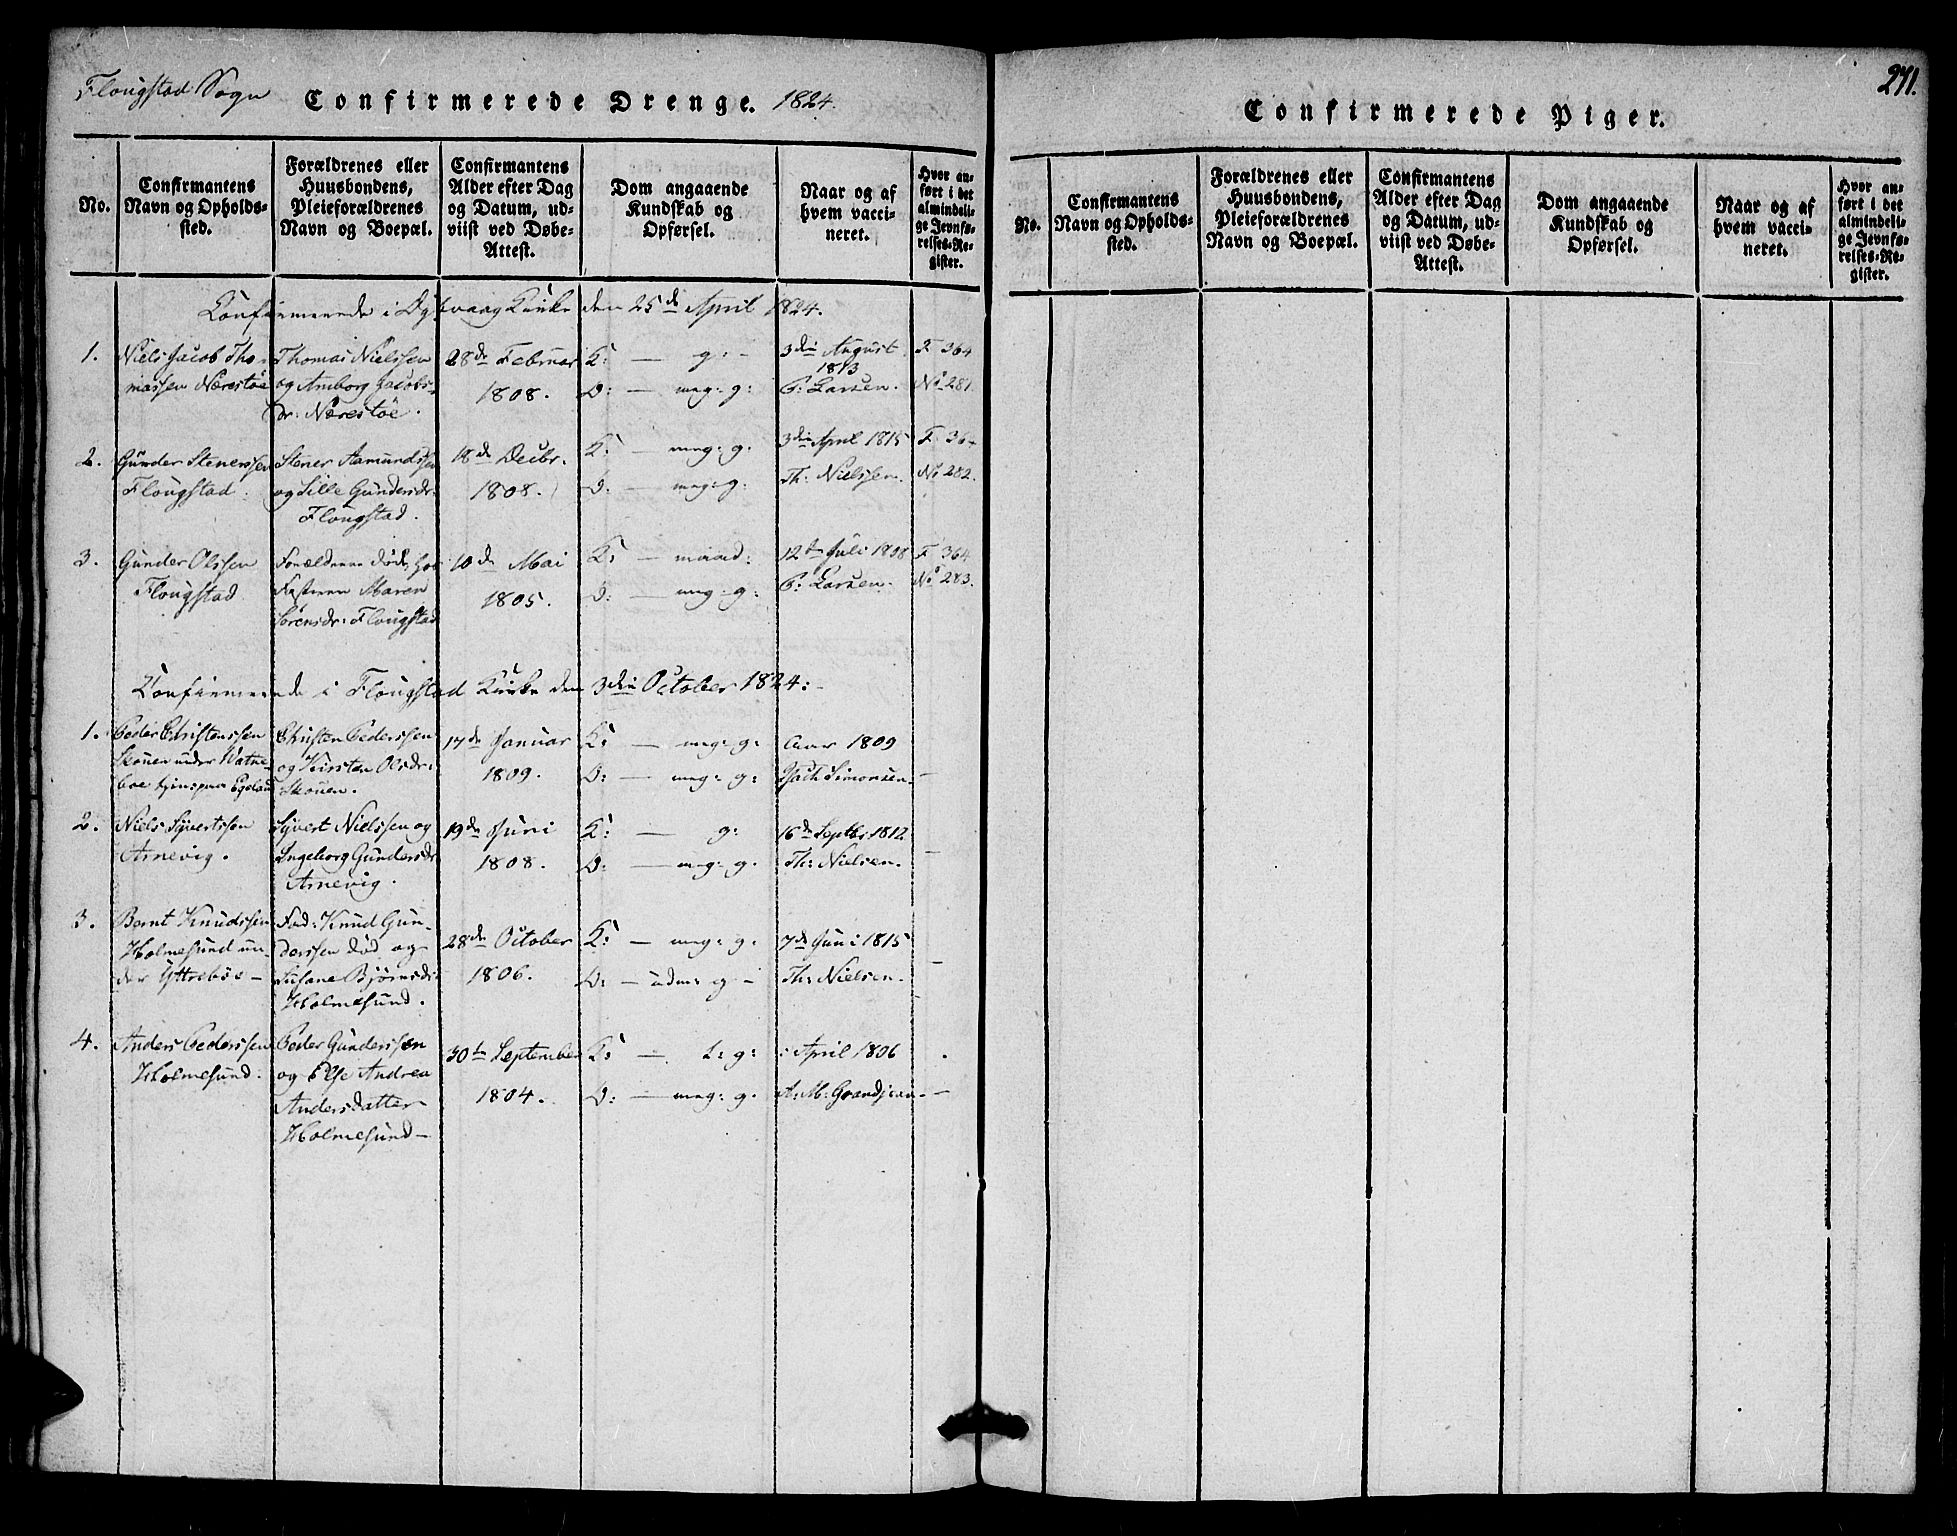 Flougstad Sogn
Confirmerede Drenge. 1824.
No.
Confirmantens
Navn og Opholds-
sted.
Forældrenes eller
Huusbondens,
Pleieforældrenes
Navn og Boepæl.
Confirmantens
Alder efter Dag
og Datum, ud-
viist ved Døbe-
Attest.
Dom angaaende
Kundskab og
Opførsel.
Naar og af
hvem vacci-
neret.
Hvor an-
ført i det
almindeli-
ge Jevnfø-
relses-Re-
gister.
Confirmerede i Dybvaag Kirke den 25de April 1824.
1.
Niels Jacob Tho-
massen Nærestøe
Thomas Nielssen
og Amborg Jacobs-
dr: Nærestøe.
28de Februar
1808.
K: — g: -
D: — meg: g:
3die August
1813
P: Larsen.
F 364
No 281.
2.
Gunder Stenerssen
Flougstad.
Stener Aamundssen
og Sille Gundersdr:
Flougstad.
18de Decbr.
1808.
K: meg: g.
D: — meg: g:
3die April 1815
Th: Nielssen.
F. 364
No 282.
3.
Gunder Olssen
Flougstad
Forældrene døde, hos
Fasteren Maren
Sørensdr: Flougstad
10de Mai
1805.
K: — maad:
D: — meg: g:
12te Juli 1808
P: Larsen.
F 364
No 283.
Confirmerede i Flougstad Kirke den 3die October 1824:
1.
Peder Christenssen
Skouen under Watne-
boe
Christen Pederssen
og Kirsten Olsdr:
Skouen.
17de Januar
1809.
K: — meg: g:
D: — meg: g:
Aar 1809
Simonsen. —
2.
Niels Syvertssen
Arnevig.
Syvert Nielssen og
Ingeborg Gundersdr
Arnevig.
19de Juni
1808.
K: — g:
D: — meg: g.
16de Septbr 1812
Th: Nielsen.
—
3.
Bernt Knudssen
Holmesund un-
der Yttrebøe —
Fad: Knud Gun-
derssen død og
Susane Bjørnsdr
Holmesund.
28de October
1806.
K: — meg: g:
D: — udm: g —
7de Juni 1815
Th: Nielsen.
—
4.
Anders Pederssen
Holmesund.
Peder Gunderssen
og Else Andrea
Andersdatter
Holmesund —
30te September
1804.
K: — t: g:
D: — meg: g.
April 1806
A: M: Grandjean. —
271.
Confirmerede Piger.
No.
Confirmantens
Navn og Opholds-
sted.
Forældrenes eller
Huusbondens,
Pleieforældrenes
Navn og Boepæl.
Confirmantens
Alder efter Dag
og Datum, ud-
viist ved Døbe-
Attest.
Dom angaaende
Kundskab og
Opførsel.
Naar og af
hvem vacci-
neret.
Hvor an-
ført i det
almindeli-
ge Jevnfø-
relses-Re-
gister.